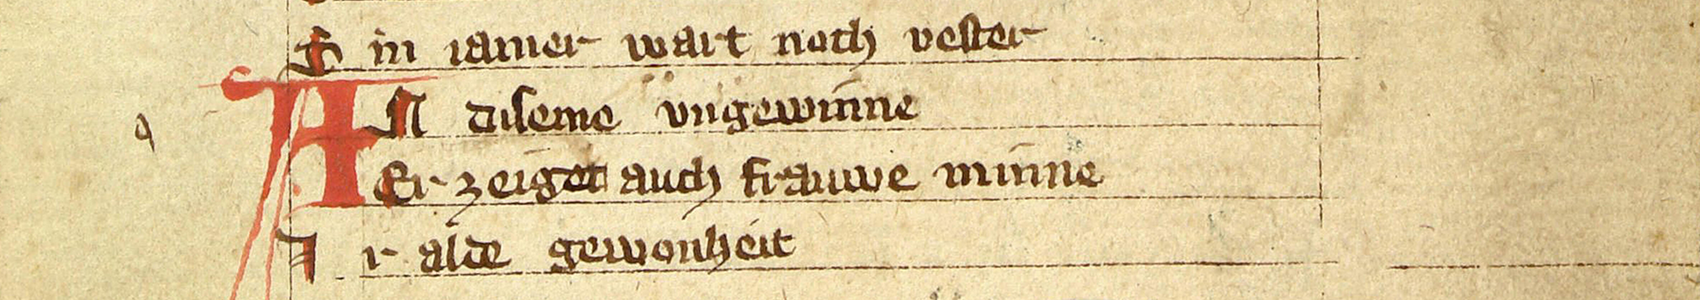 S in iamer wart noch vester
a AN diseme vngewinne
Er zeiget auch frauwe minne
I r alde gewonheit